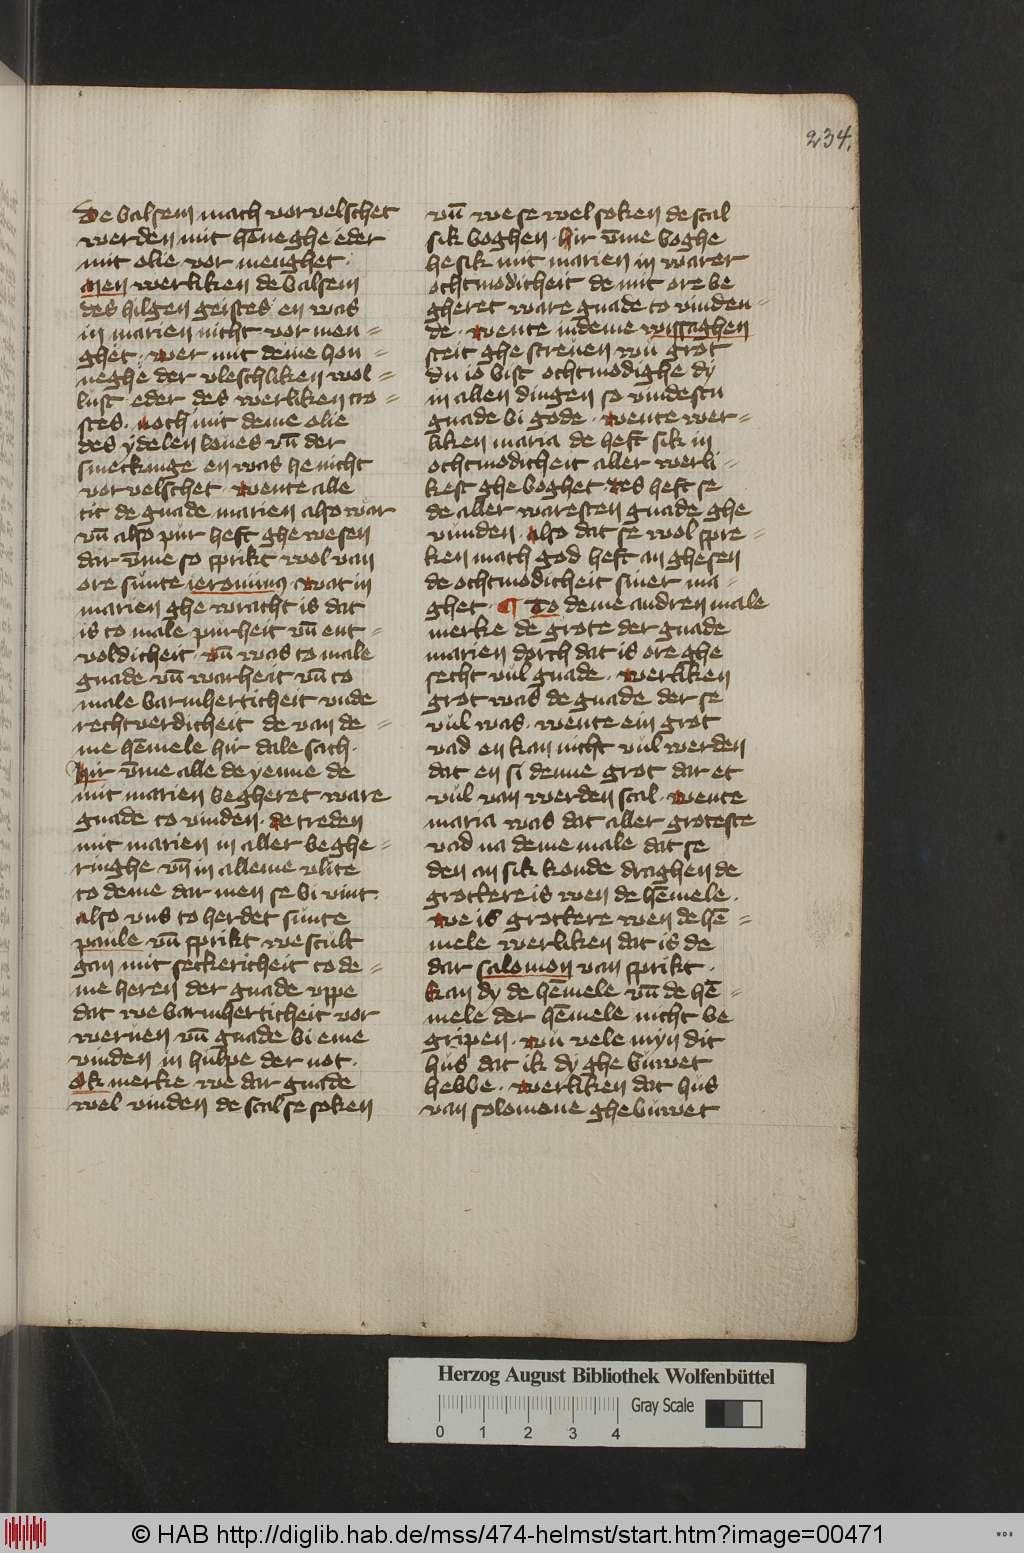 234.
De balsem mach vorvelschet
werden mit hōneghe eder
mit olie vor menghet ·
Men werliken de balsem
des hilgen geistes en was
in marien nicht vor men =
ghet · wer mit deme hon =
neghe der vleschliken wol =
lust eder des werliken tro =
stes · noch mit deme olie
des ydelen loues vn̄ der
smeckinge en was he nicht
vorvelschet · wente alle
tit de gnade marien also war
vn̄ also pur heft ghe wesen
dar v̄me so sprikt wol van
ore sunte ieronimus · wat in
marien ghe wracht is dat
is to male purheit vn̄ ent =
voldicheit · vn̄ was to male
gnade vn̄ warheit vn̄ to
male barmherticheit vnde
rechtverdicheit de van de =
me hēmele hir dale sach ·
Hir v̄me alle de yenne de
mit marien begheret ware
gnade to vinden · de treden
mit marien in aller beghe =
ringhe vn̄ in alleme vlite
to deme dar men se bi vint ·
also vns to herdet sunte
paule vn̄ sprikt we scult
gan mit seckericheit to de =
me heren der gnade vppe
dat we barmherticheit vor
weruen vn̄ gnade bi eme
vinden in hulpe der not ·
Ok merke we dar gnade
wel vinden de scal se soken
vn̄ we se wel soken de scal
sik boghen · hir v̄me boghe
he sik mit marien in warer
ochtmodicheit de mit ore be
gheret ware gnade to vinden =
de · wente in deme wissaghen
steit ghe screuen wu grot
du io bist ochtmodighe dy
in allen dingen so vindestu
gnade bi gode · wente wer =
liken maria de heft sik in
ochtmodicheit aller werli =
kest ghe boghet · des heft se
de aller waresten gnade ghe
vunden · also dat se wol spre =
ken mach god heft an ghesen
de ochtmodicheit siner ma =
ghet · ¶ To deme andren male
merke de grote der gnade
marien dorch dat is ore ghe
secht vul gnade · werliken
grot was de gnade der se
vul was · wente ein grot
vad en kan nicht vul werden
dat en si denne grot dar et
vul van werden scal · wente
maria was dat aller groteste
vad na deme male dat se
den an sik konde draghen de
grottere is wen de hēmele ·
we is grottere wen de hē =
mele werliken dat is de
dar salomon van sprikt ·
kan dy de hēmele vn̄ de hē =
mele der hēmele nicht be
gripen · wu vele myn dit
hus dat ik dy ghe buwet
hebbe · werliken dat hus
van solomone ghebuwet
Herzog August Bibliothek Wolfenbüttel
Gray Scale
0 1 2 3 4
© HAB http://diglib.hab.de/mss/474-helmst/start.htm?image=00471